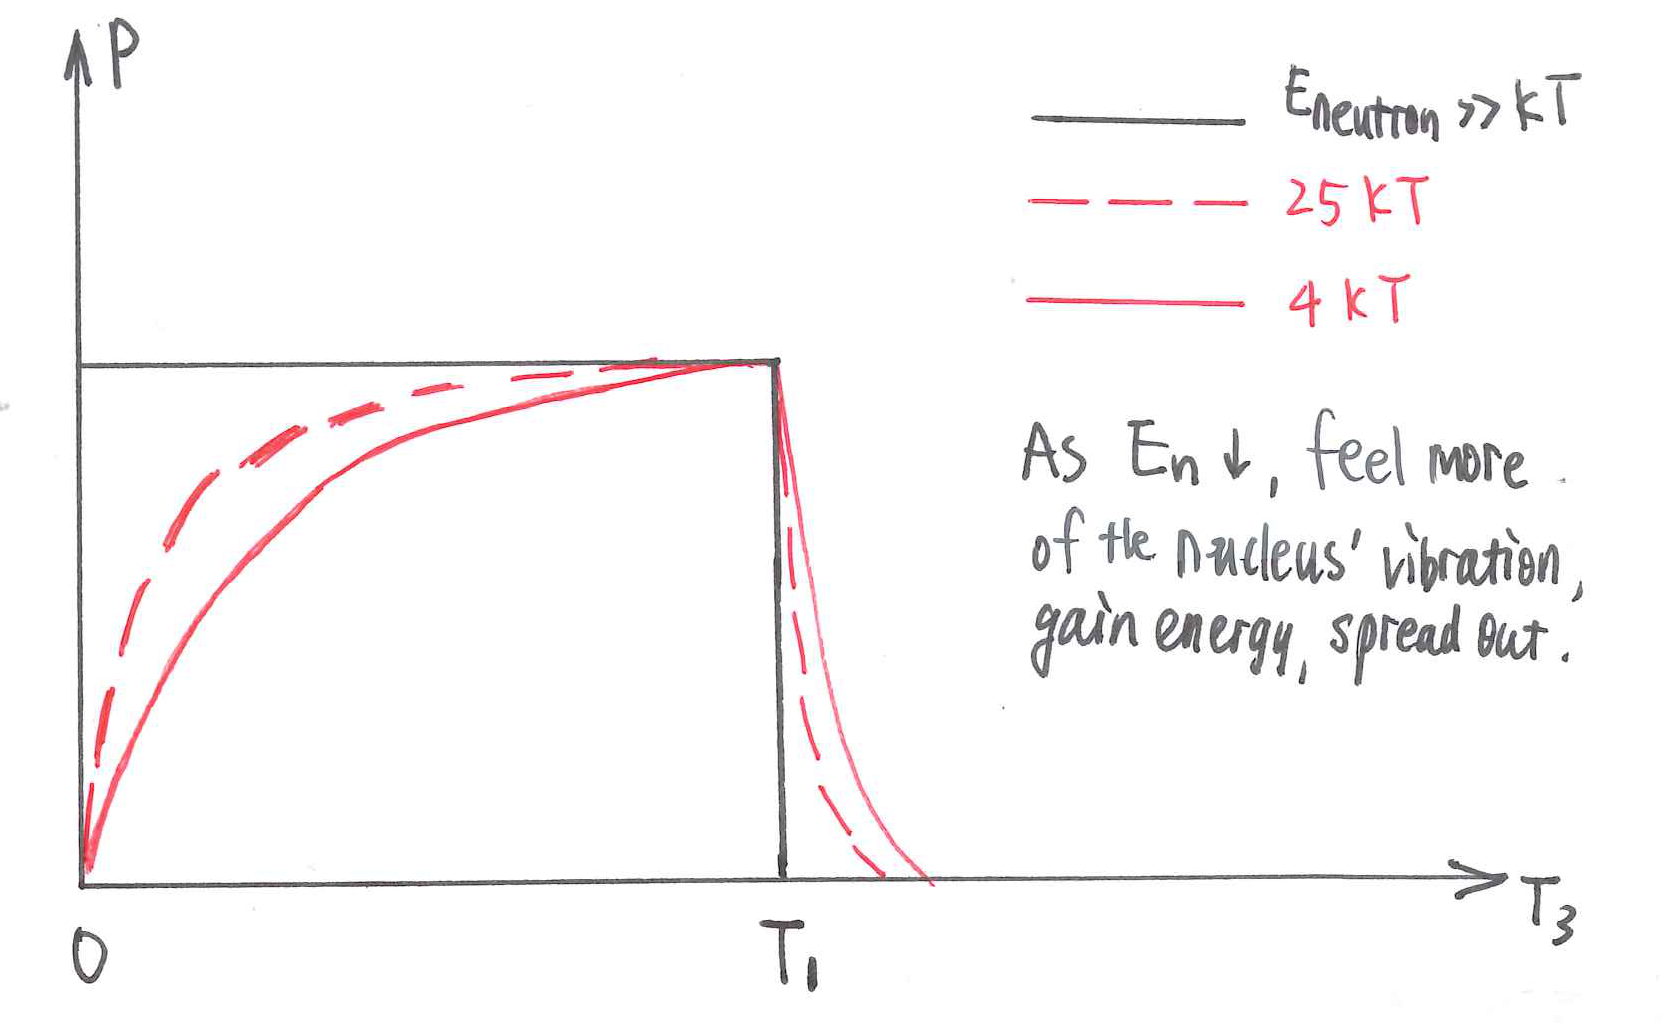 P
Eneutron >> kT
25 kT
4 kT
As En ↓, feel more
of the nucleus' vibration,
gain energy, spread out.
0
T1
T3